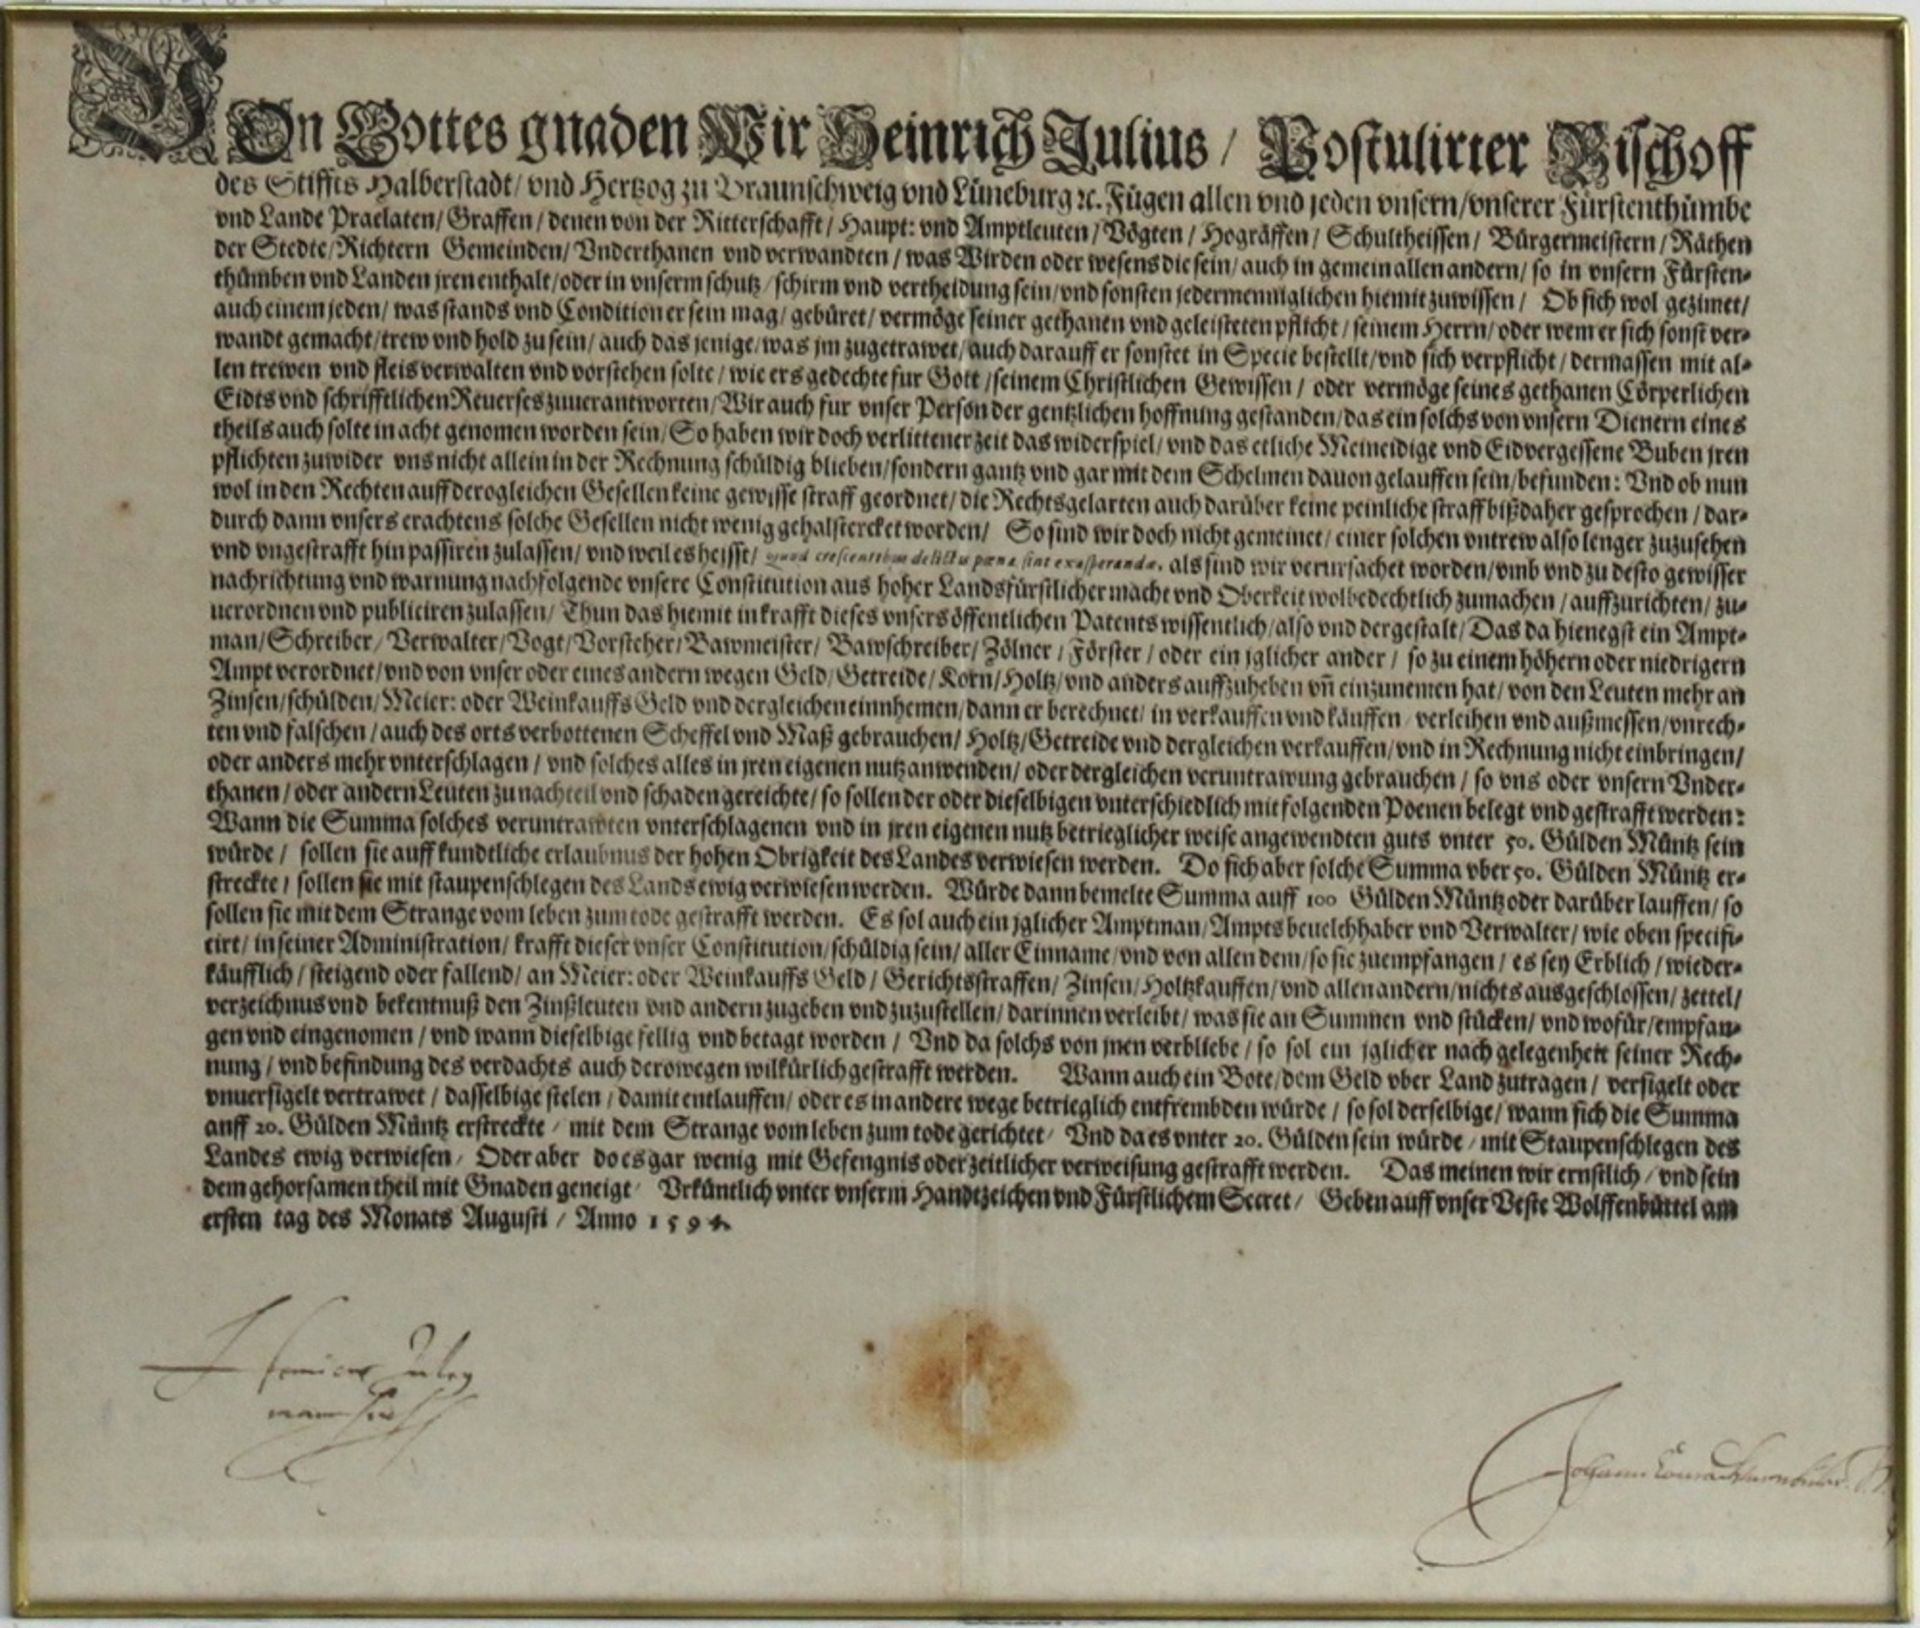 VOn Gottes gnaden Wir Heinrich Julius / Postulirter Bischoff
des Stiffts Halberstadt / vnd Hertzog zu Braunschweig vnd Lüneburg ꝛc. Fügen allen vnd jeden vnsern / vnserer Fürstenthümbe
vnd Lande Praelaten / Graffen / denen von der Ritterschafft / Haupt: vnd Amptleuten / Vögten / Hogräffen / Schultheissen / Bürgermeistern / Räthen
der Stedte / Richtern Gemeinden / Vnderthanen vnd verwandten / was Wirden oder wesens die sein / auch in gemein allen andern / so in vnsern Fürsten-
thümben vnd Landen jren enthalt / oder in vnserm schutz / schirm vnd vertheidung sein / vnd sonsten jedermenniglichen hiemit zuwissen / Ob sich wol gezimet /
auch einem jeden / was stands vnd Condition er sein mag / gebüret / vermöge seiner gethanen vnd geleisteten pflicht / seinem Herrn / oder wem er sich sonst ver-
wandt gemacht / trew vnd hold zu sein / auch das jenige / was jm zugetrawet / auch darauff er sonstet in Specie bestellt / vnd sich verpflicht / dermassen mit al-
len trewen vnd fleis verwalten vnd vorstehen solte / wie ers gedechte fur Gott / seinem Christlichen Gewissen / oder vermöge seines gethanen Cörperlichen
Eidts vnd schrifftlichen Reuerses zuuerantworten / Wir auch fur vnser Person der gentzlichen hoffnung gestanden / das ein solchs von vnsern Dienern eines
theils auch solte in acht genomen worden sein / So haben wir doch verlittener zeit das widerspiel / vnd das etliche Meineidige vnd Eidvergessene Buben jren
pflichten zuwider vns nicht allein in der Rechnung schüldig blieben / sondern gantz vnd gar mit dem Schelmen dauon gelauffen sein / befunden: Vnd ob nun
wol in den Rechten auff derogleichen Gesellen keine gewisse straff geordnet / die Rechtsgelarten auch darüber keine peinliche straff bißdaher gesprochen / dar-
durch dann vnsers erachtens solche Gesellen nicht wenig gehalstercket worden / So sind wir doch nicht gemeinet / einer solchen vntrew also lenger zuzusehen
vnd vngestrafft hin passiren zulassen / vnd weil es heisst / quod crescentibus delictis pœnæ sint exasperandæ, als sind wir verursachet worden / vmb vnd zu desto gewisser
nachrichtung vnd warnung nachfolgende vnsere Constitution aus hoher Landsfürstlicher macht vnd Oberkeit wolbedechtlich zumachen / auffzurichten / zu-
uerordnen vnd publiciren zulassen / Thun das hiemit in krafft dieses vnsers öffentlichen Patents wissentlich / also vnd dergestalt / Das da hienegst ein Ampt-
man / Schreiber / Verwalter / Vogt / Vorsteher / Bawmeister / Bawschreiber / Zölner / Förster / oder ein jglicher ander / so zu einem höhern oder niedrigern
Ampt verordnet / vnd von vnser oder eines andern wegen Geld / Getreide / Korn / Holtz / vnd anders auffzuheben vñ einzunemen hat / von den Leuten mehr an
Zinsen / schülden / Meier: oder Weinkauffs Geld vnd dergleichen einnhemen / dann er berechnet / in verkauffen vnd käuffen / verleihen vnd außmessen / vnrech-
ten vnd falschen / auch des orts verbottenen Scheffel vnd Maß gebrauchen / Holtz / Getreide vnd dergleichen verkauffen / vnd in Rechnung nicht einbringen /
oder anders mehr vnterschlagen / vnd solches alles in jren eigenen nutz anwenden / oder dergleichen veruntrawung gebrauchen / so vns oder vnsern Vnder-
thanen / oder andern Leuten zu nachteil vnd schaden gereichte / so sollen der oder dieselbigen vnterschiedlich mit folgenden Poenen belegt vnd gestrafft werden:
Wann die Summa solches veruntrawten vnterschlagenen vnd in jren eigenen nutz betrieglicher weise angewendten guts vnter 50. Gülden Müntz sein
würde / sollen sie auff kundtliche erlaubnus der hohen Obrigkeit des Landes verwiesen werden. Do sich aber solche Summa vber 50. Gülden Müntz er-
streckte / sollen sie mit staupenschlegen des Lands ewig verwiesen werden. Würde dann bemelte Summa auff 100 Gülden Müntz oder darüber lauffen / so
sollen sie mit dem Strange vom leben zum tode gestrafft werden. Es sol auch ein jglicher Amptman / Ampts beuelchhaber vnd Verwalter / wie oben specifi-
cirt / in seiner Administration / krafft dieser vnser Constitution / schüldig sein / aller Einname / vnd von allen dem / so sie zuempfangen / es sey Erblich / wieder-
käufflich / steigend oder fallend / an Meier: oder Weinkauffs Geld / Gerichtsstraffen / Zinsen / Holtzkauffen / vnd allen andern / nichts ausgeschlossen / zettel /
verzeichnus vnd bekentnuß den Zinßleuten vnd andern zugeben vnd zuzustellen / darinnen verleibt / was sie an Summen vnd stücken / vnd wofür / empfan-
gen vnd eingenomen / vnd wann dieselbige fellig vnd betagt worden / Vnd da solchs von jnen verbliebe / so sol ein jglicher nach gelegenheit seiner Rech-
nung / vnd befindung des verdachts auch derowegen wilkürlich gestrafft werden. Wann auch ein Bote / dem Geld vber Land zutragen / versigelt oder
vnuersigelt vertrawet / dasselbige stelen / damit entlauffen / oder es in andere wege betrieglich entfrembden würde / so sol derselbige / wann sich die Summa
auff 20. Gülden Müntz erstreckte / mit dem Strange vom leben zum tode gerichtet / Vnd da es vnter 20. Gülden sein würde / mit Staupenschlegen des
Landes ewig verwiesen / Oder aber do es gar wenig mit Gefengnis oder zeitlicher verweisung gestrafft werden. Das meinen wir ernstlich / vnd sein
dem gehorsamen theil mit Gnaden geneigt / Vrkündtlich vnter vnserm Handtzeichen vnd Fürstlichem Secret / Geben auff vnser Veste Wolffenbüttel am
ersten tag des Monats Augusti / Anno 1594.
Henricus Julius
Johann